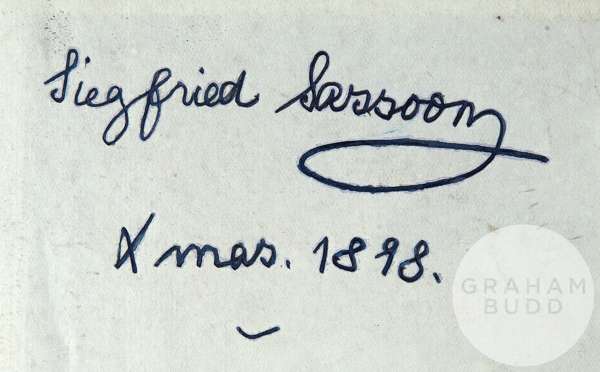 Siegfried Sassoon
Xmas. 1898.
GRAHAM
BUDD